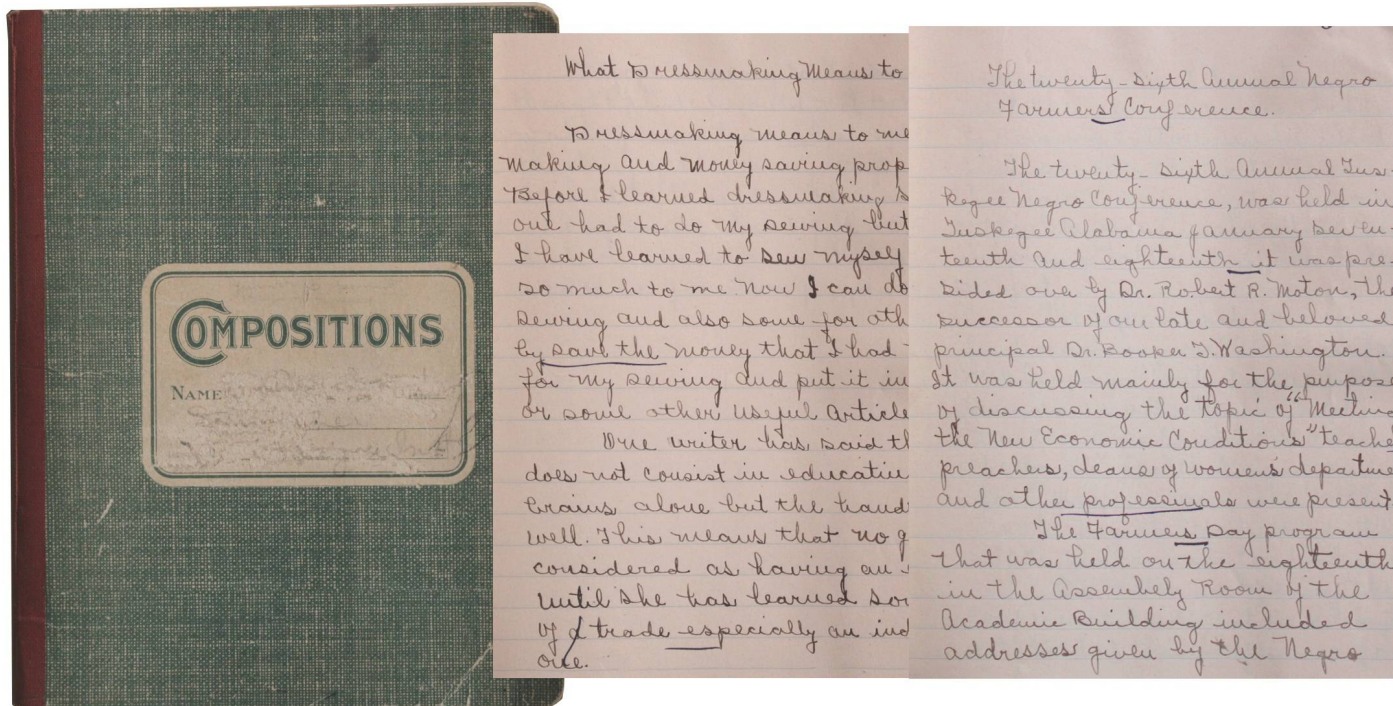 COMPOSITIONS
NAME
What Dressmaking Means to
Dressmaking means to me
making and money saving prop
Before I learned dressmaking s
out had to do my sewing but
I have learned to sew myself
so much to me now I can do
sewing and also some for oth
by save the money that I had
for my sewing and put it in
or some other useful article
One writer has said th
does not consist in educatin
brains alone but the hand
well. This means that no g
considered as having an
until she has learned so
of a trade especially an ind
one.
The twenty-sixth Annual Negro
Farmers Conference.
The twenty-sixth Annual Tus-
kegee Negro Conference, was held in
Tuskegee Alabama January seven-
teenth and eighteenth it was pre-
sided over by Dr. Robert R. Moton, the
successor of our late and beloved
principal Dr. Booker T. Washington.
It was held mainly for the purpose
of discussing the topic of "Meeting
the New Economic Conditions" teache
preachers, deans of women's departme
and other professinals were present
The Farmers Day program
that was held on the eighteenth
in the Assembely Room of the
Academic Building included
addresses given by the Negro